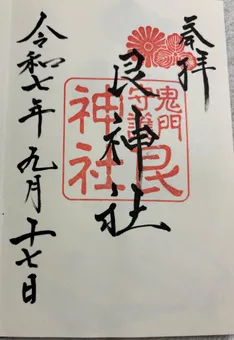 奉拝
艮神社
鬼門
守護
艮
神社
令和七年九月二十七日